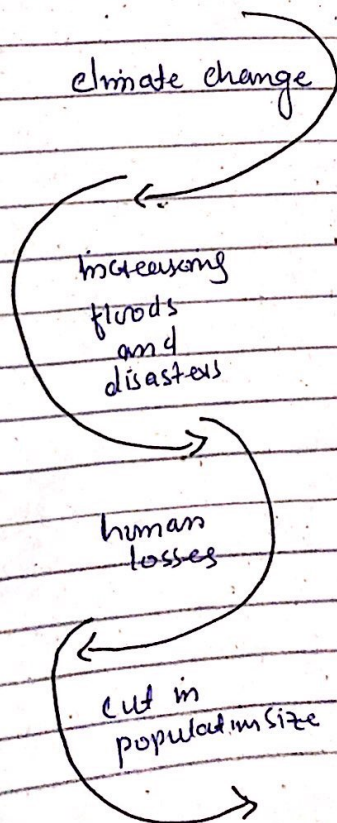 climate change
increasing
floods
and
disasters
human
losses
cut in
population size